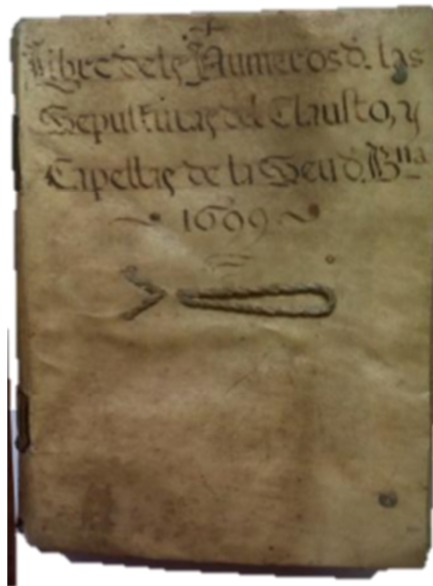 Llibre dels Numeros d. las
Sepulturas del Claustro, y
Capellas de la Seu d. Bna
1609